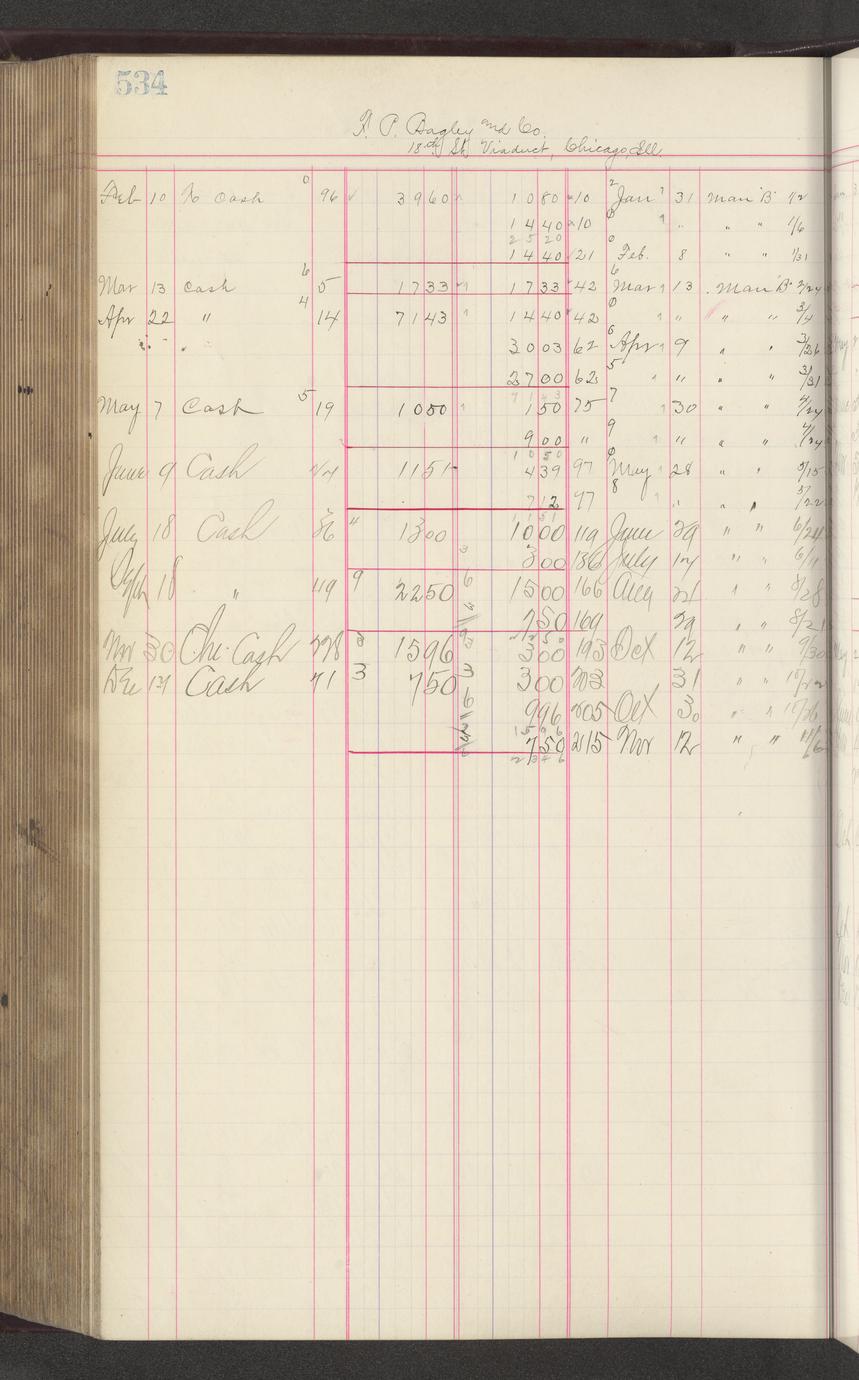 534
F. P. Bagley and Co.
18th St. Viaduct, Chicago, Ill.
Feb 10 To Cash 0 96 3960 1080 10 2 Jan 31 Man B 1/2
1440 10 0 " " " 1/6
2520
1440 21 0 Feb. 8 " " 1/31
Mar 13 cash 6 5 1733 1733 42 6 Mar 13 Man B 2/24
Apr 22 " 4 14 7143 1440 42 0 " " " 3/4
3003 62 6 Apr 9 " " 3/26
2700 62 5 " " " 3/31
7143
May 7 Cash 5 19 1050 150 75 7 30 " " 4/24
900 " 9 " " " 4/24
1050
June 9 Cash 1151 439 97 0 May 28 " " 5/15
712 97 8 " " " 5/22
1151
July 18 Cash 36 1300 1000 119 June 29 " "
300 136 July 14 " "
18 " 49 9 2250 1500 166 Aug 21 " " 8/28
750 169 29 " " 8/21
2250
Nov 30 Chi. Cash 1596 300 193 Oct 12 " " 9/30
Dec Cash 71 3 750 300 203 31
996 205 Oct 30 " " 10/26
1596
750 215 Nov 12 " " 11/6
2346